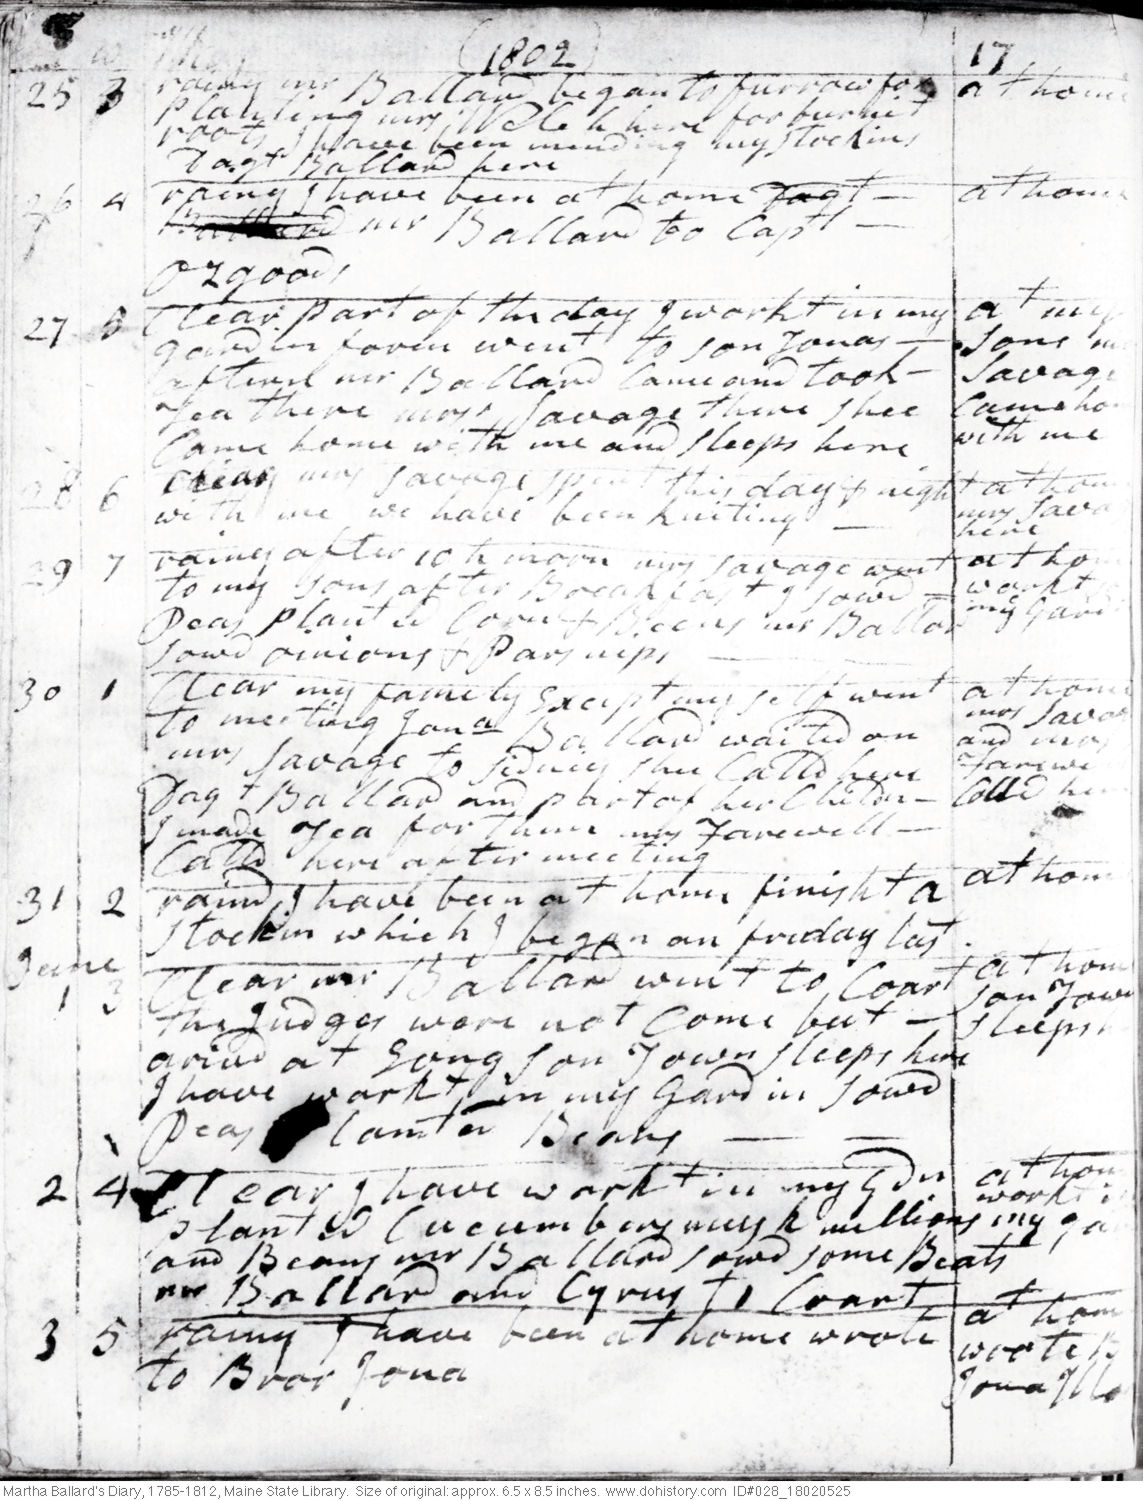 May (1802) 17
25 3 rainy mr Ballard began to furrow for at home
planting mrs Welch here for burnet
roots I have been mending my stockins
Dagt Ballard here
26 4 rainy I have been at home Dagt — at home
Ballard mr Ballard to Capt —
Ozgoods
27 5 Clear part of the day I workt in my at my
gardin foren went to son Jonas — sons
aftern mr Ballard Came and took — Savage
Tea there mrs Savage there shee Came
Came home with me and sleeps here with me
28 6 Clear mrs Savage spent this day & night at
with me we have been kniting — mrs
here
29 7 rainy after 10 h morn mrs Savage went at
to my sons after Breakfast I sowd — workt
Peas planted Corn & Beens mr Ballard my
sowd oinions & Parsnips —
30 1 Clear my family Except my self went at home
to meeting Jona Ballard waited on mrs
mrs Savage to Sidney shee Calld here and mrs
Dagt Ballard and part of her Childn — Farewe
I made Tea for them mrs Farewell — Calld
Calld here after meeting
31 2 raind I have been at home finisht a at
stockin which I began on friday last.
June
1 3 Clear mr Ballard went to Coart at
the Judges were not Come but — son Town
arivd at Evng son Town sleeps here sleeps
I have workt in my Gardin sowd
Peas Beans — —
2 4 Clear I have workt in my Gdn at
planted Cucumbers musk millions workt
and Beans mr Ballard sowd some Beats my
mr Ballard and Cyrus to Coart
3 5 rainy I have been at home wrote at
to Bror Jona wrote B
Jona
Martha Ballard's Diary, 1785-1812, Maine State Library. Size of original: approx. 6.5 x 8.5 inches. www.dohistory.com ID#028_18020525